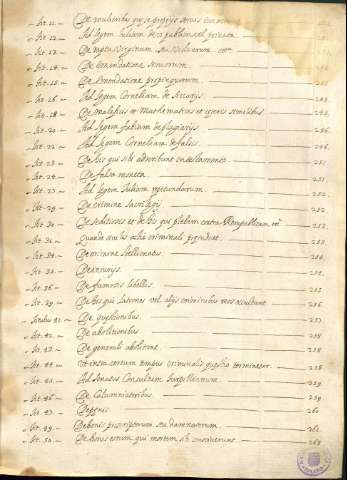 Tit. 11. De mulieribus quæ se propriis servis
Tit. 12. Ad legem Juliam de vi publica, vel privata
Tit. 13. De raptu Virginum, seu Viduarum
Tit. 14. De emendatione servorum
Tit. 15. De Emendatione propinquorum
Tit. 16. Ad legem Corneliam de Sicarijs 295.
Tit. 18. De Maleficis et Mathematicis et cæteris similibus 295.
Tit. 20. Ad legem fabiam de plagiarijs 296.
Tit. 22. Ad legem Corneliam de falsis
Tit. 23. De his qui sibi adscribunt in testamento 251.
Tit. 24. De falsa moneta 251.
Tit. 27. Ad legem Juliam repetundarum 252.
Tit. 29. De crimine sacrilegij 252.
Tit. 30. De seditiosis et de his qui plebem contra Rempublicam 253.
Tit. 31. Quando civilis actio criminali præjudicet
Tit. 34. De crimine stellionatus
Tit. 35. De iniurijs
Tit. 36. De famosis libellis
Tit. 39. De his qui latrones vel alijs criminibus reos occultant 256.
Titulus 41. De quæstionibus
De abolitionibus 258.
Tit. 43. De generali abolitione 258.
Tit. 44. Ut intra certum tempus criminalis quæstio terminetur 258.
Tit. 45. Ad Senatus Consultum Turpilianum 259.
Tit. 46. De Calumniatoribus 259.
Tit. 47. De pœnis 261.
Tit. 49. De bonis proscriptorum seu damnatorum
Tit. 50. De bonis eorum qui mortem sibi consciverunt 263